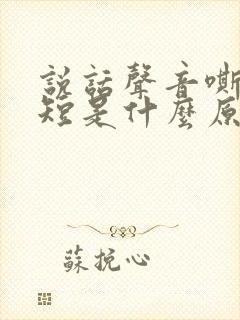 説話聲音嘶
短是什麼原
蘇挽心